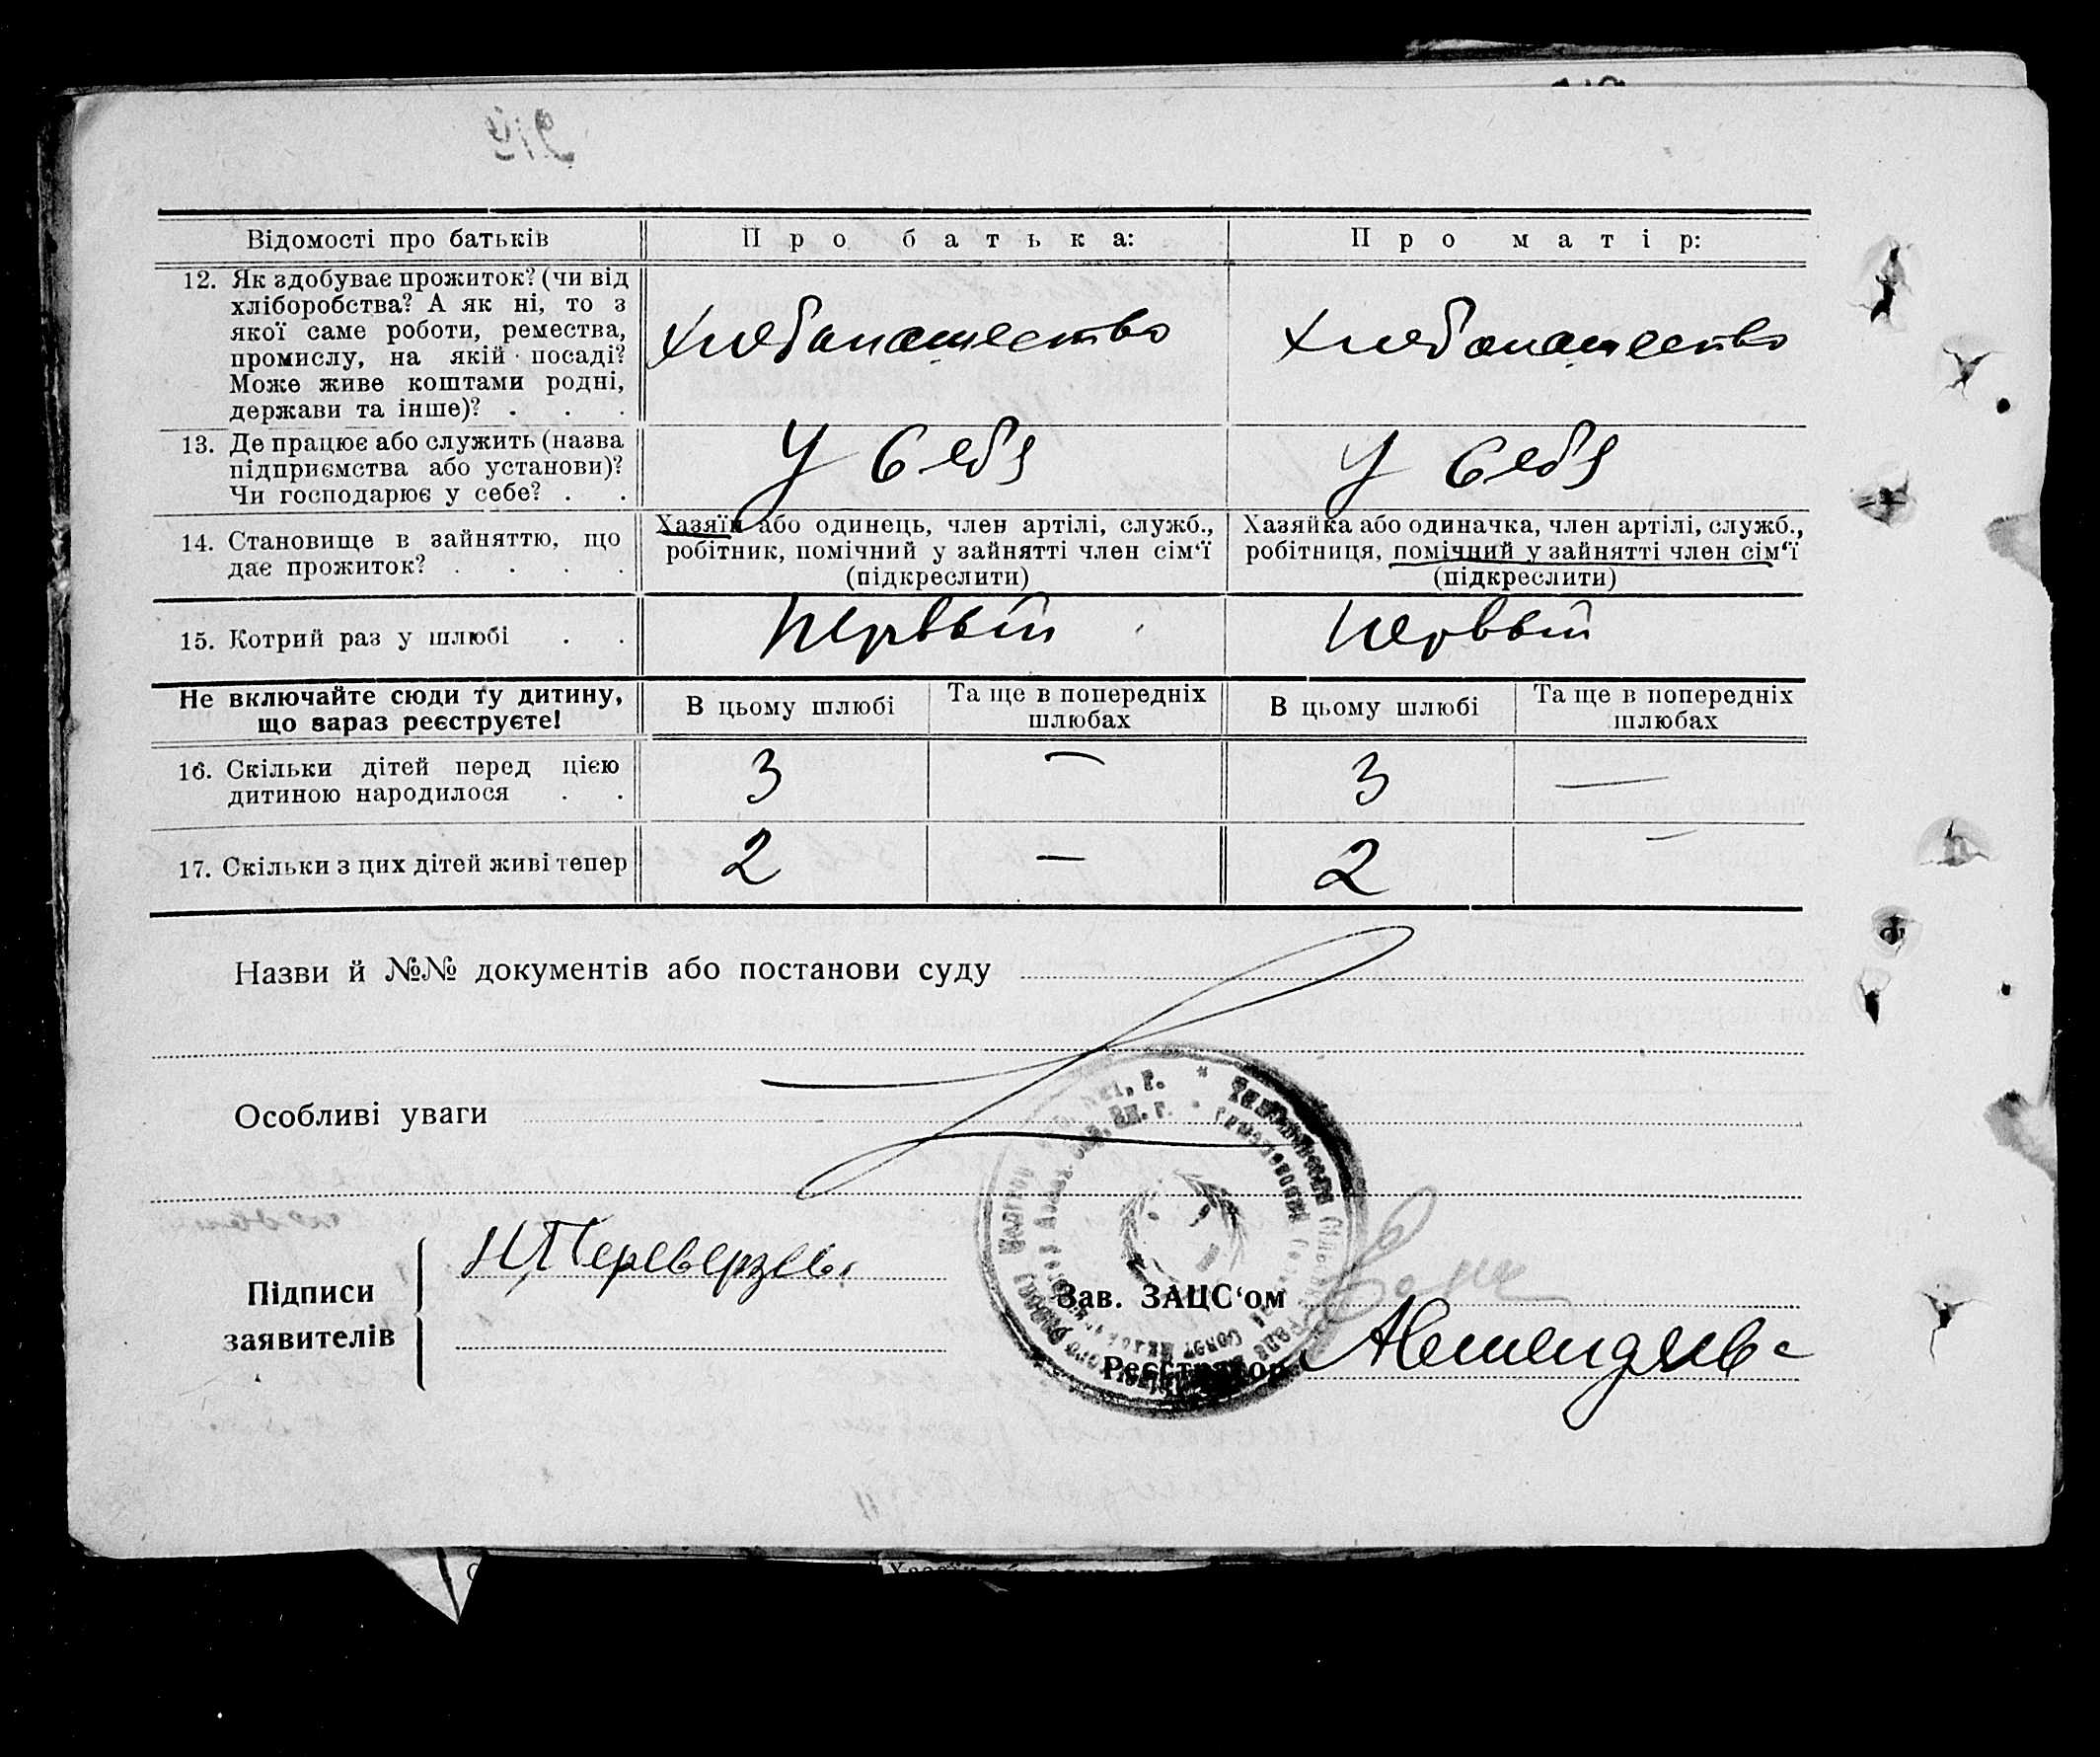 Відомості про батьків
Про батька:
Про матір:
12. Як здобуває прожиток? (чи від
хліборобства? А як ні, то з
якої саме роботи, ремества,
промислу, на якій посаді?
Може живе коштами родні,
держави та інше)? . . .
Хлебопашество
Хлебопашество
13. Де працює або служить (назва
підприємства або установи)?
Чи господарює у себе? . .
У себя
У себя
14. Становище в зайняттю, що
дає прожиток? . . . .
Хазяїн або одинець, член артілі, служб.,
робітник, помічний у зайнятті член сім‘ї
(підкреслити)
Хазяйка або одиначка, член артілі, служб.,
робітниця, помічний у зайнятті член сім‘ї
(підкреслити)
15. Котрий раз у шлюбі . .
Первый
Первый
Не включайте сюди ту дитину,
що зараз реєструєте!
В цьому шлюбі
Та ще в попередніх
шлюбах
В цьому шлюбі
Та ще в попередніх
шлюбах
16. Скільки дітей перед цією
дитиною народилося . .
3 — 3 —
17. Скільки з цих дітей живі тепер
2 — 2 —
Назви й №№ документів або постанови суду
Особливі уваги
Підписи
заявителів
Н Переверзев
Зав. ЗАЦС‘ом
Реєстратор